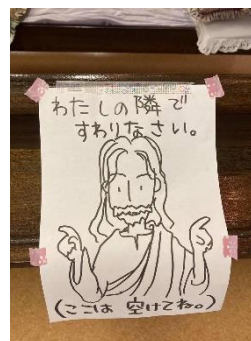 わたしの隣で
すわりなさい。
(ここは 空けてね。)